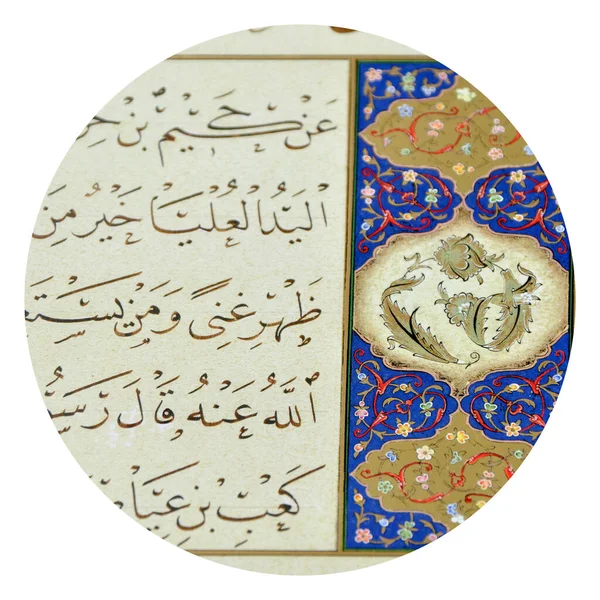 عَنْ حَكِيْمِ بْنِ
اَلْيَدُ الْعُلْيَا خَيْرٌ مِنَ
ظَهْرِ غِنًى وَمَنْ
اللّٰهُ عَنْهُ قَالَ
كَعْبِ بْنِ